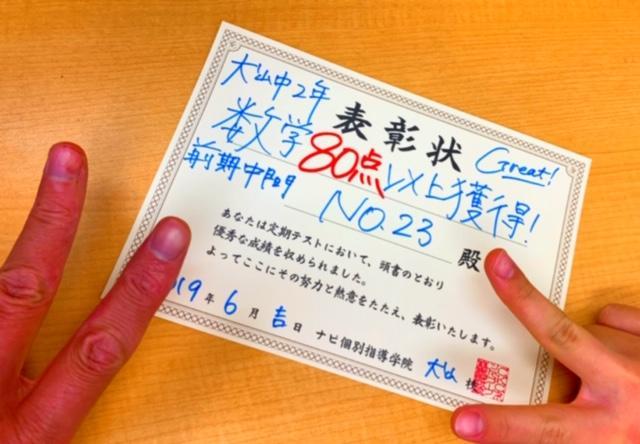 大山中2年
表彰状
Great!
数学80点以上獲得!
前期中間
No.23
殿
あなたは定期テストにおいて、頭書のとおり
優秀な成績を収められました。
よってここにその努力と熱意をたたえ、表彰いたします。
19年6月吉日 ナビ個別指導学院 大山 校